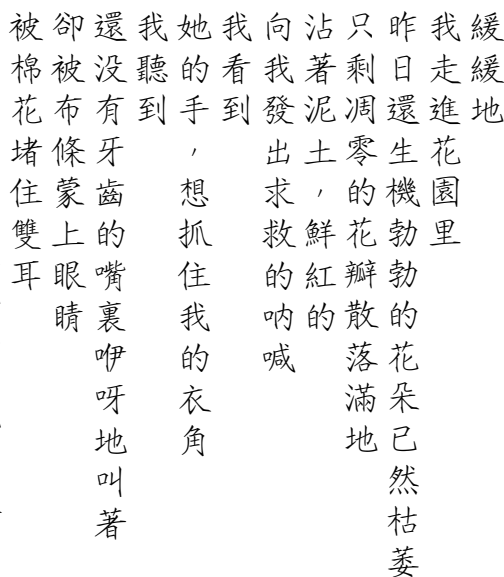 緩緩地
我走進花園里
昨日還生機勃勃的花朵已然枯萎
只剩凋零的花瓣散落滿地
沾著泥土，鮮紅的
向我發出求救的呐喊
我看到
她的手，想抓住我的衣角
我聽到
還没有牙齒的嘴裏咿呀地叫著
卻被布條蒙上眼睛
被棉花堵住雙耳